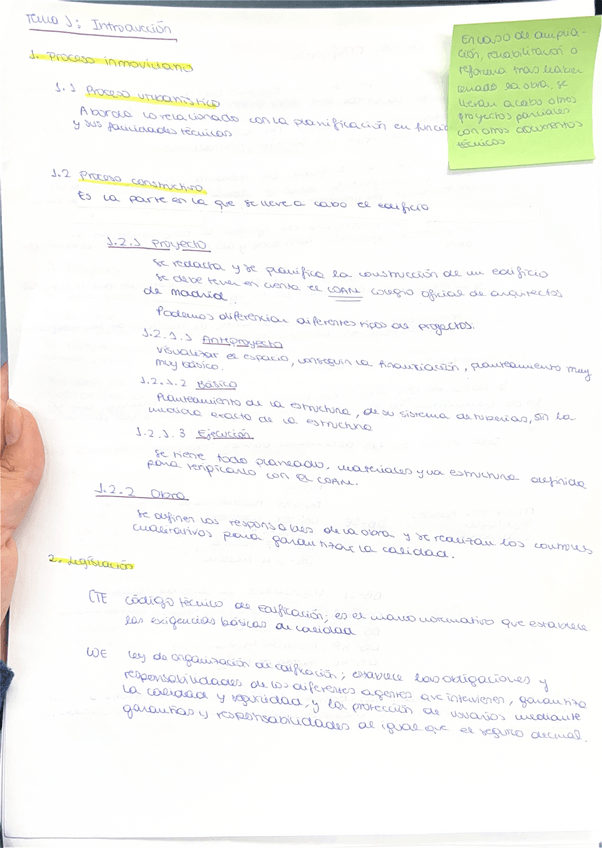 Tema 1: Introducción
1. Proceso inmobiliario
1.1 Proceso urbanístico
Aborda lo relacionado con la planificación en func
y sus facultades técnicas
En caso de amplia-
ción, rehabilitación o
reforma tras haber
acabado la obra, se
llevan a cabo otros
proyectos parciales
con otros documentos
técnicos
1.2 Proceso constructivo
Es la parte en la que se lleve a cabo el edificio
1.2.1 Proyecto
Se redacta y se planifica la construcción de un edificio
se debe tener en cuenta el COAM colegio oficial de arquitectos
de madrid.
Podemos diferenciar diferentes tipos de proyectos.
1.2.1.1 Anteproyecto
visualizar el espacio, conseguir la financiación, planteamiento muy
muy básico.
1.2.1.2 Básico
Planteamiento de la estructura, de su sistema de tuberías, sin la
medida exacta de la estructura
1.2.1.3 Ejecución
Se tiene todo planeado, materiales y la estructura definida
para verificarlo con el COAM.
1.2.2 Obra
Se definen los responsables de la obra y se realizan los controles
cualitativos para garantizar la calidad.
2. Legislación
CTE código técnico de edificación; es el marco normativo que establece
las exigencias básicas de calidad
LOE ley de organización de edificación; establece las obligaciones y
responsabilidades de los diferentes agentes que intervienen, garantiza
la calidad y seguridad, y la protección de usuarios mediante
garantías y responsabilidades al igual que el seguro decenal.